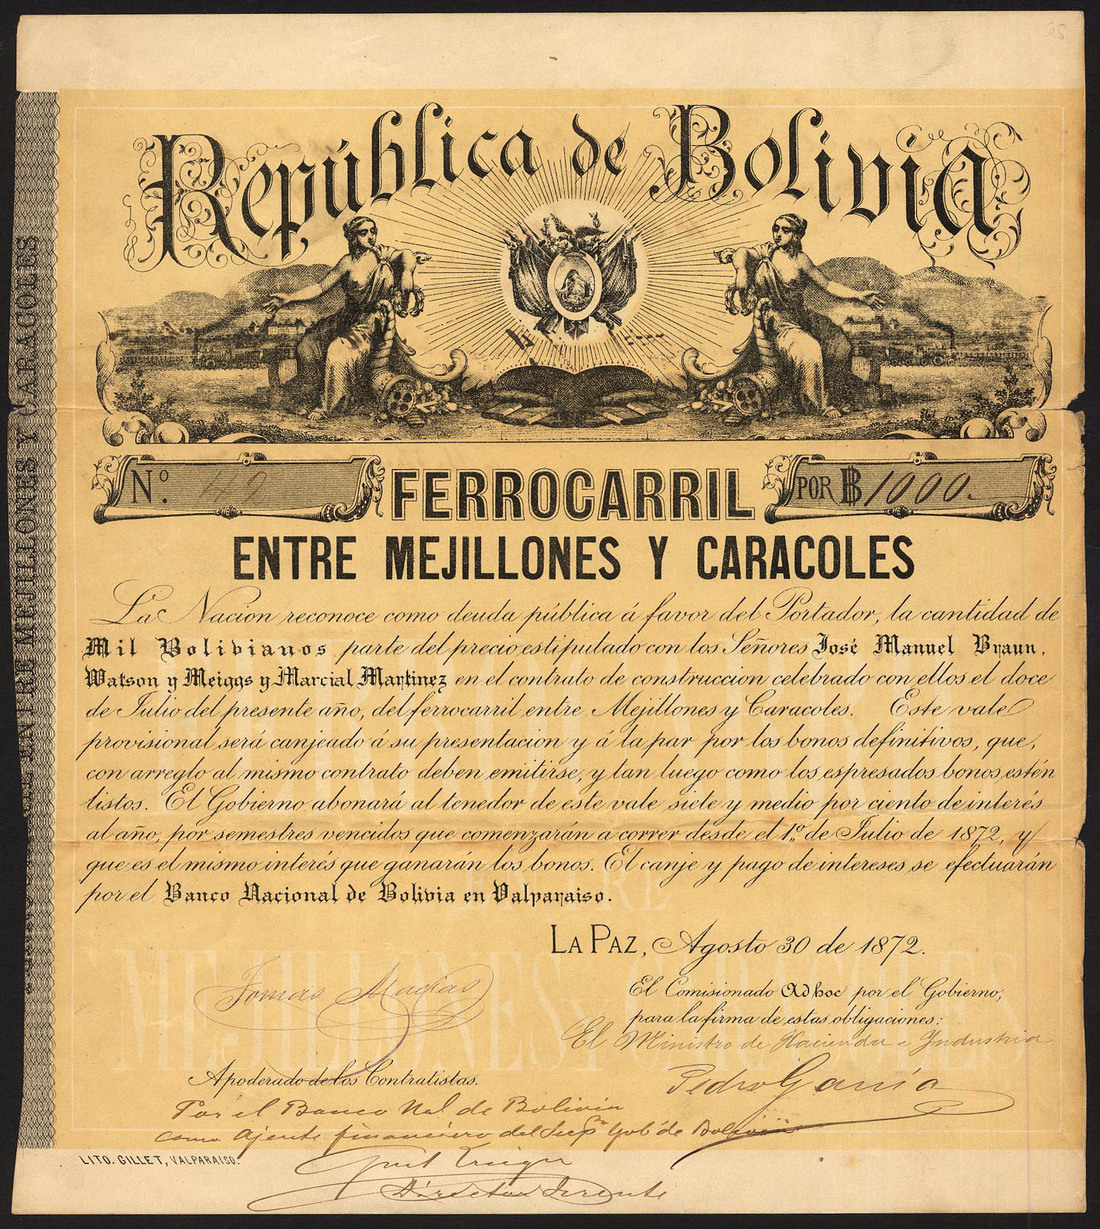 República de Bolivia
Nº. 42
FERROCARRIL
POR B 1000.
ENTRE MEJILLONES Y CARACOLES
La Nacion reconoce como deuda pública á favor del Portador, la cantidad de
Mil Bolivianos parte del precio estipulado con los Señores José Manuel Braun,
Watson y Meiggs y Marcial Martinez en el contrato de construccion celebrado con ellos el doce
de Julio del presente año, del ferrocarril entre Mejillones y Caracoles. Este vale
provisional será canjeado á su presentacion y á la par por los bonos definitivos, que,
con arreglo al mismo contrato deben emitirse, y tan luego como los espresados bonos estén
listos. El Gobierno abonará al tenedor de este vale siete y medio por ciento de interés
al año, por semestres vencidos que comenzarán a correr desde el 1º de Julio de 1872, y
que es el mismo interés que ganarán los bonos. El canje y pago de intereses se efectuarán
por el Banco Nacional de Bolivia en Valparaiso.
LA PAZ, Agosto 30 de 1872.
El Comisionado Ad hoc por el Gobierno,
para la firma de estas obligaciones:
El Ministro de Hacienda e Industria
Pedro García
Tomas Macias
Apoderado de los Contratistas.
Por el Banco Nal de Bolivia
como Ajente financiero del Sup.º Gob.º de Bolivia
Director Jerente
LITO. GILLET, VALPARAISO.
ENTRE MEJILLONES Y CARACOLES
ENTRE
MEJILLONES Y CARACOLES